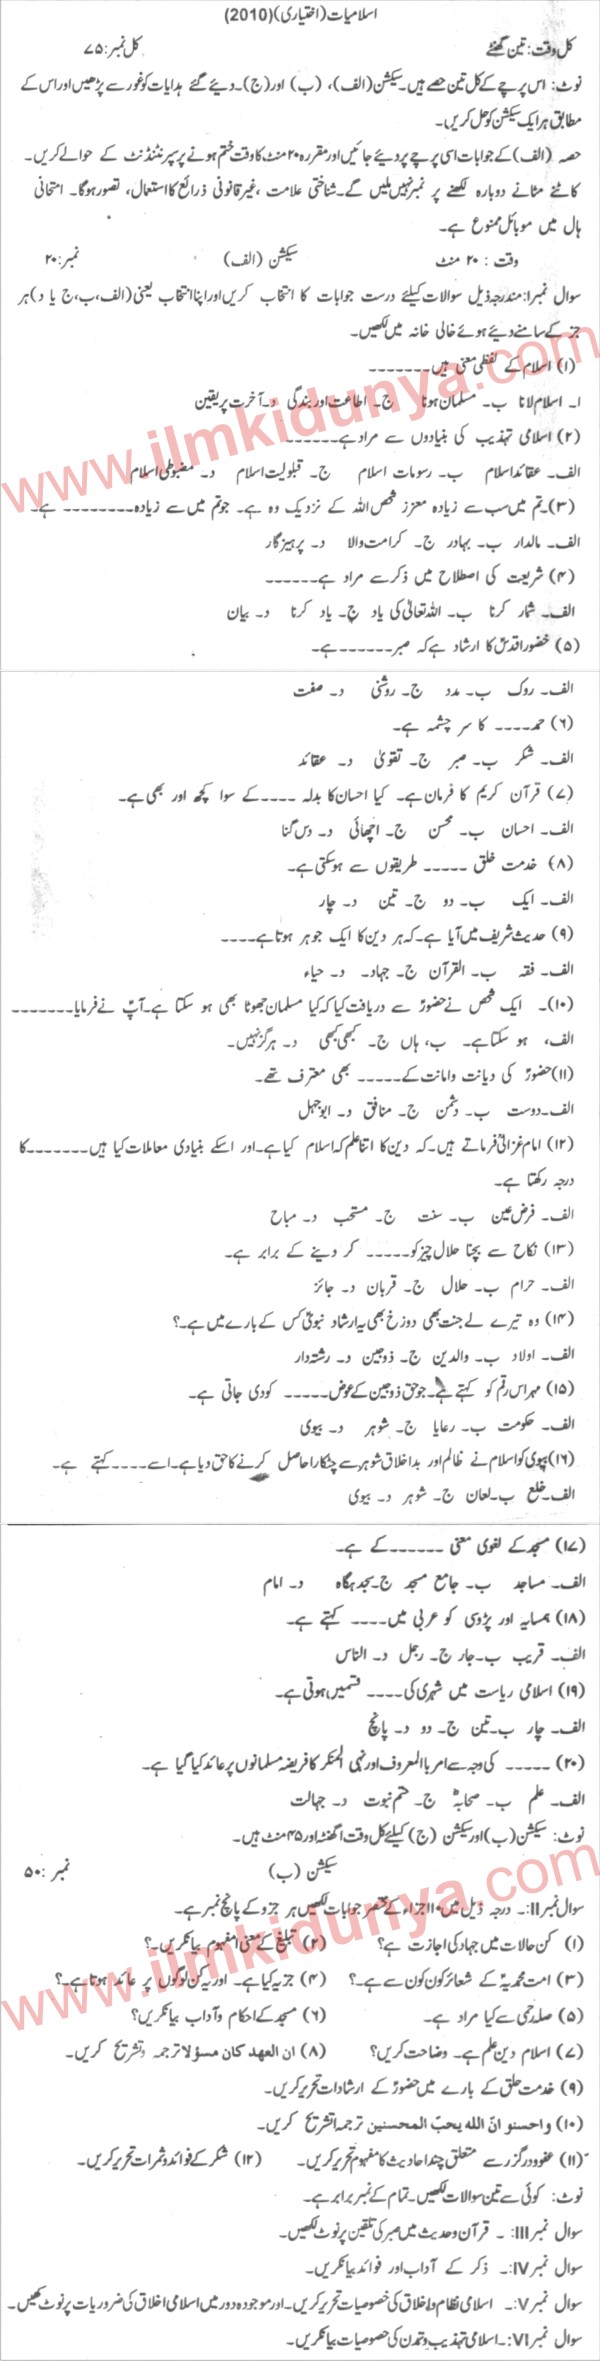 اسلامیات (اختیاری) (2010)
کل وقت: تین گھنٹے کل نمبر: ۷۵
نوٹ: اس پرچے کے کل تین حصے ہیں۔ سیکشن (الف)، (ب) اور (ج)۔ دیئے گئے ہدایات کو غور سے پڑھیں اور اس کے
مطابق ہر ایک سیکشن کو حل کریں۔
حصہ (الف) کے جوابات اسی پرچے پر دیئے جائیں اور مقررہ ۲۰ منٹ کا وقت ختم ہونے پر سپرنٹنڈنٹ کے حوالے کریں۔
کاٹنے مٹانے دوبارہ لکھنے پر نمبر نہیں ملیں گے۔ شناختی علامت، غیر قانونی ذرائع کا استعمال، تصور ہوگا۔ امتحانی
ہال میں موبائل ممنوع ہے۔
وقت: ۲۰ منٹ سیکشن (الف) نمبر: ۲۰
سوال نمبرا: مندرجہ ذیل سوالات کیلئے درست جوابات کا انتخاب کریں اور اپنا انتخاب یعنی (الف، ب، ج یا د) ہر
جز کے سامنے دیئے ہوئے خالی خانہ میں لکھیں۔
(۱) اسلام کے لفظی معنی ہیں -------
ا۔ اسلام لانا ب۔ مسلمان ہونا ج۔ اطاعت اور بندگی د۔ آخرت پر یقین
(۲) اسلامی تہذیب کی بنیادوں سے مراد ہے ------
الف۔ عقائد اسلام ب۔ رسومات اسلام ج۔ قبولیت اسلام د۔ مضبوطی اسلام
(۳)۔ تم میں سب سے زیادہ معزز شخص اللہ کے نزدیک وہ ہے۔ جو تم میں سے زیادہ --------- ہے۔
الف۔ مالدار ب۔ بہادر ج۔ کرامت والا د۔ پرہیزگار
(۴) شریعت کی اصطلاح میں ذکر سے مراد ہے ------
الف۔ شمار کرنا ب۔ اللہ تعالیٰ کی یاد ج۔ یاد کرنا د۔ بیان
(۵) حضور اقدسؐ کا ارشاد ہے کہ صبر ------ ہے۔
الف۔ روک ب۔ مدد ج۔ روشنی د۔ صفت
(۶) حمد ---- کا سر چشمہ ہے۔
الف۔ شکر ب۔ صبر ج۔ تقویٰ د۔ عقائد
(۷) قرآن کریم کا فرمان ہے۔ کیا احسان کا بدلہ ---- کے سوا کچھ اور بھی ہے۔
الف۔ احسان ب۔ محسن ج۔ اچھائی د۔ دس گنا
(۸) خدمت خلق ----- طریقوں سے ہو سکتی ہے۔
الف۔ ایک ب۔ دو ج۔ تین د۔ چار
(۹) حدیث شریف میں آیا ہے۔ کہ ہر دین کا ایک جوہر ہوتا ہے ----
الف۔ فقہ ب۔ القرآن ج۔ جہاد۔ د۔ حیاء
(۱۰)۔ ایک شخص نے حضورؐ سے دریافت کیا کہ کیا مسلمان جھوٹا بھی ہو سکتا ہے۔ آپؐ نے فرمایا -------
الف، ہو سکتا ہے۔ ب، ہاں ج۔ کبھی کبھی د۔ ہرگز نہیں۔
(۱۱) حضورؐ کی دیانت وامانت کے ----- بھی معترف تھے۔
الف۔ دوست ب۔ دشمن ج۔ منافق د۔ ابوجہل
(۱۲) امام غزالیؒ فرماتے ہیں۔ کہ دین کا اتنا علم کہ اسلام کیا ہے۔ اور اسکے بنیادی معاملات کیا ہیں ------- کا
درجہ رکھتا ہے۔
الف۔ فرض عین ب۔ سنت ج۔ مستحب د۔ مباح
(۱۳) نکاح سے بچنا حلال چیز کو ----- کر دینے کے برابر ہے۔
الف۔ حرام ب۔ حلال ج۔ قربان د۔ جائز
(۱۴) وہ تیرے لے جنت بھی دوزخ بھی یہ ارشاد نبویؐ کس کے بارے میں ہے۔؟
الف۔ اولاد ب۔ والدین ج۔ زوجین د۔ رشتہ دار
(۱۵) مہر اس رقم کو کہتے ہے۔ جو حق زوجین کے عوض ----- کو دی جاتی ہے۔
الف۔ حکومت ب۔ رعایا ج۔ شوہر د۔ بیوی
(۱۶) بیوی کو اسلام نے ظالم اور بد اخلاق شوہر سے چھٹکارا حاصل کرنے کا حق دیا ہے۔ اسے ---- کہتے ہے۔
الف۔ خلع ب۔ لعان ج۔ شوہر د۔ بیوی
(۱۷) مسجد کے لغوی معنی ------ کے ہے۔
الف۔ مساجد ب۔ جامع مسجد ج۔ سجدہ گاہ د۔ امام
(۱۸) ہمسایہ اور پڑوسی کو عربی میں ---- کہتے ہے۔
الف۔ قریب ب۔ جار ج۔ رجل د۔ الناس
(۱۹) اسلامی ریاست میں شہری کی ---- قسمیں ہوتی ہے۔
الف۔ چار ب۔ تین ج۔ دو د۔ پانچ
(۲۰) ----- کی وجہ سے امر با المعروف اور نہی المنکر کا فریضہ مسلمانوں پر عائد کیا گیا ہے۔
الف۔ علم ب۔ صحابہؓ ج۔ ختم نبوت د۔ جہالت
نوٹ: سیکشن (ب) اور سیکشن (ج) کیلئے کل وقت ۲ گھنٹہ اور ۴۵ منٹ ہیں۔
سیکشن (ب) نمبر: ۵۰
سوال نمبر II:۔ درجہ ذیل میں ۱۰ اجزاء کے مختصر جوابات لکھیں ہر جزو کے پانچ نمبر ہے۔
(۱) کن حالات میں جہاد کی اجازت ہے؟ (۲) تبلیغ کے معنی مفہوم بیان کریں۔؟
(۳) امت محمدیہؐ کے شعائر کون کون سے ہے۔؟ (۴) جزیہ کیا ہے۔ اور یہ کن لوگوں پر عائد ہوتا ہے۔؟
(۵) صلہ رحمی سے کیا مراد ہے۔ (۶) مسجد کے احکام و آداب بیان کریں؟
(۷) اسلام دین علم ہے۔ وضاحت کریں؟ (۸) ان العهد كان مسؤلا ترجمہ و تشریح کریں۔
(۹) خدمت خلق کے بارے میں حضورؐ کے ارشادات تحریر کریں۔
(۱۰) واحسنو انّ الله يحبّ المحسنين ترجمہ تشریح کریں۔
(۱۱) عفو و درگزر سے متعلق چند احادیث کا مفہوم تحریر کریں۔ (۱۲) شکر کے فوائد و ثمرات تحریر کریں۔
نوٹ: کوئی سے تین سوالات لکھیں۔ تمام کے نمبر برابر ہے۔
سوال نمبر III:۔ قرآن و حدیث میں صبر کی تلقین پر نوٹ لکھیں۔
سوال نمبر IV:۔ ذکر کے آداب اور فوائد بیان کریں۔
سوال نمبر V:۔ اسلامی نظام و اخلاق کی خصوصیات تحریر کریں۔ اور موجودہ دور میں اسلامی اخلاق کی ضروریات پر نوٹ لکھیں۔
سوال نمبر VI:۔ اسلامی تہذیب و تمدن کی خصوصیات بیان کریں۔
www.ilmkidunya.com
www.ilmkidunya.com